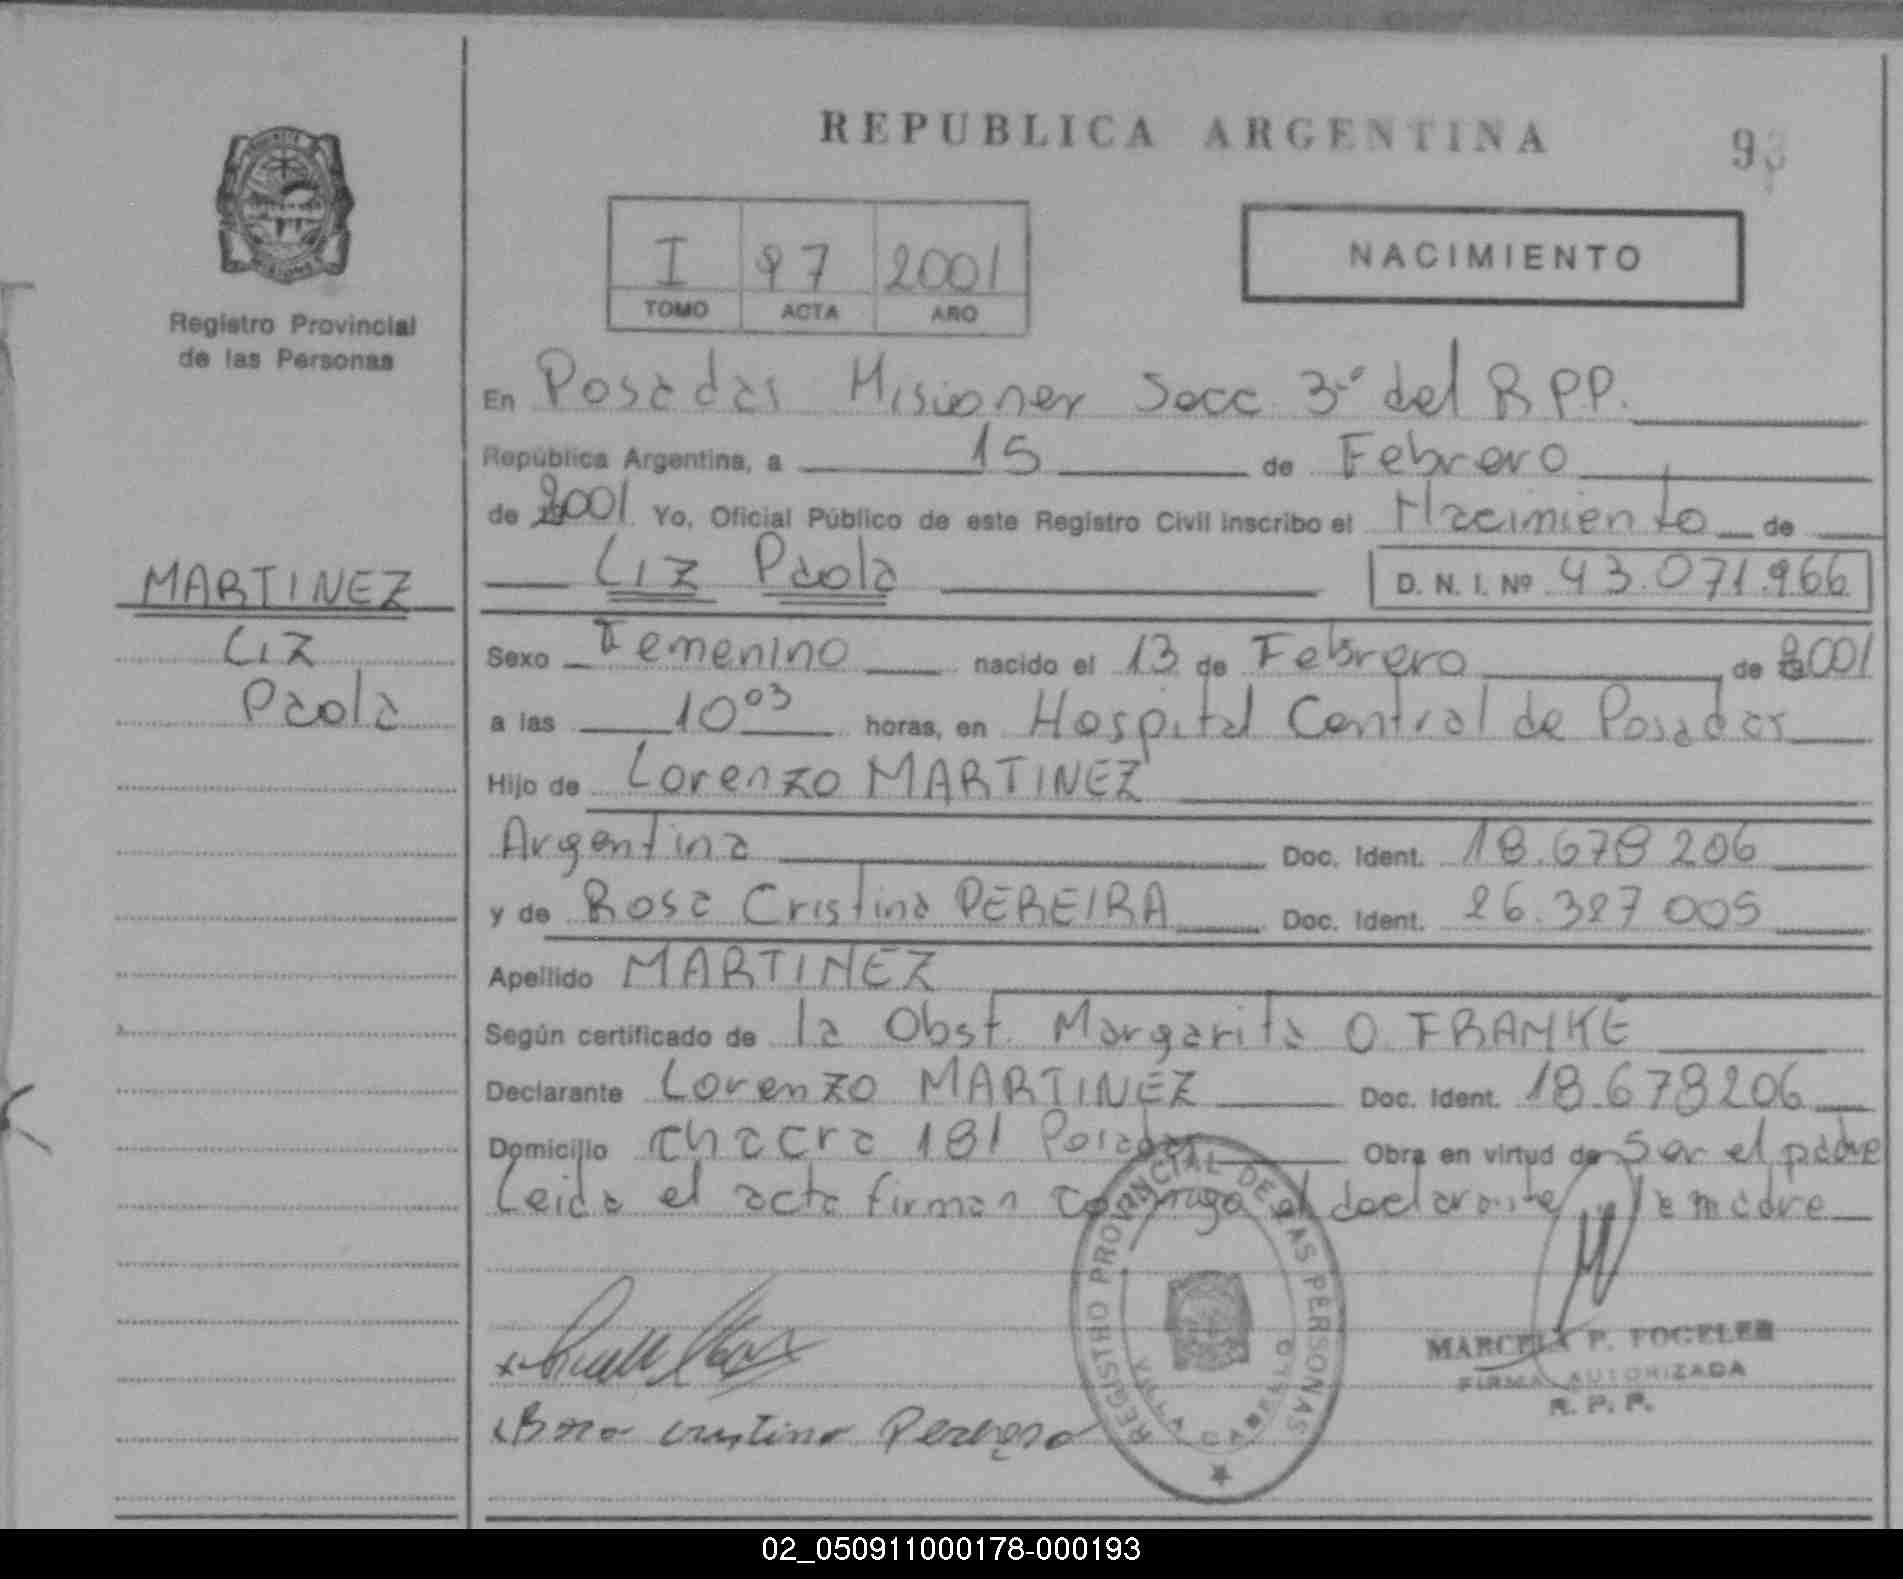 REPUBLICA ARGENTINA
93
I 97 2001
TOMO ACTA AÑO
NACIMIENTO
Registro Provincial
de las Personas
En Posadas Misiones Secc 3ª del R P.P.
República Argentina, a 15 de Febrero
de 2001 Yo, Oficial Público de este Registro Civil inscribo el Nacimiento de
Liz Paola D. N. I. Nº 43.071.966
MARTINEZ
Liz
Paola
Sexo Femenino nacido el 13 de Febrero de 2001
a las 10⁰³ horas, en Hospital Central de Posadas
Hijo de Lorenzo MARTINEZ
Argentina Doc. Ident. 18.678 206
y de Rosa Cristina PEREIRA Doc. Ident. 26.327 005
Apellido MARTINEZ
Según certificado de la Obst. Margarita O. FRANKE
Declarante Lorenzo MARTINEZ Doc. Ident. 18.678206
Domicilio chacra 181 Posadas Obra en virtud de Ser el padre
Leida el acta firman conmigo el declarante y la madre
REGISTRO PROVINCIAL DE LAS PERSONAS
VILLA CABELLO
MARCELA P. FOGELER
FIRMA AUTORIZADA
R. P. P.
Rosa Cristina Pereira
02_050911000178-000193